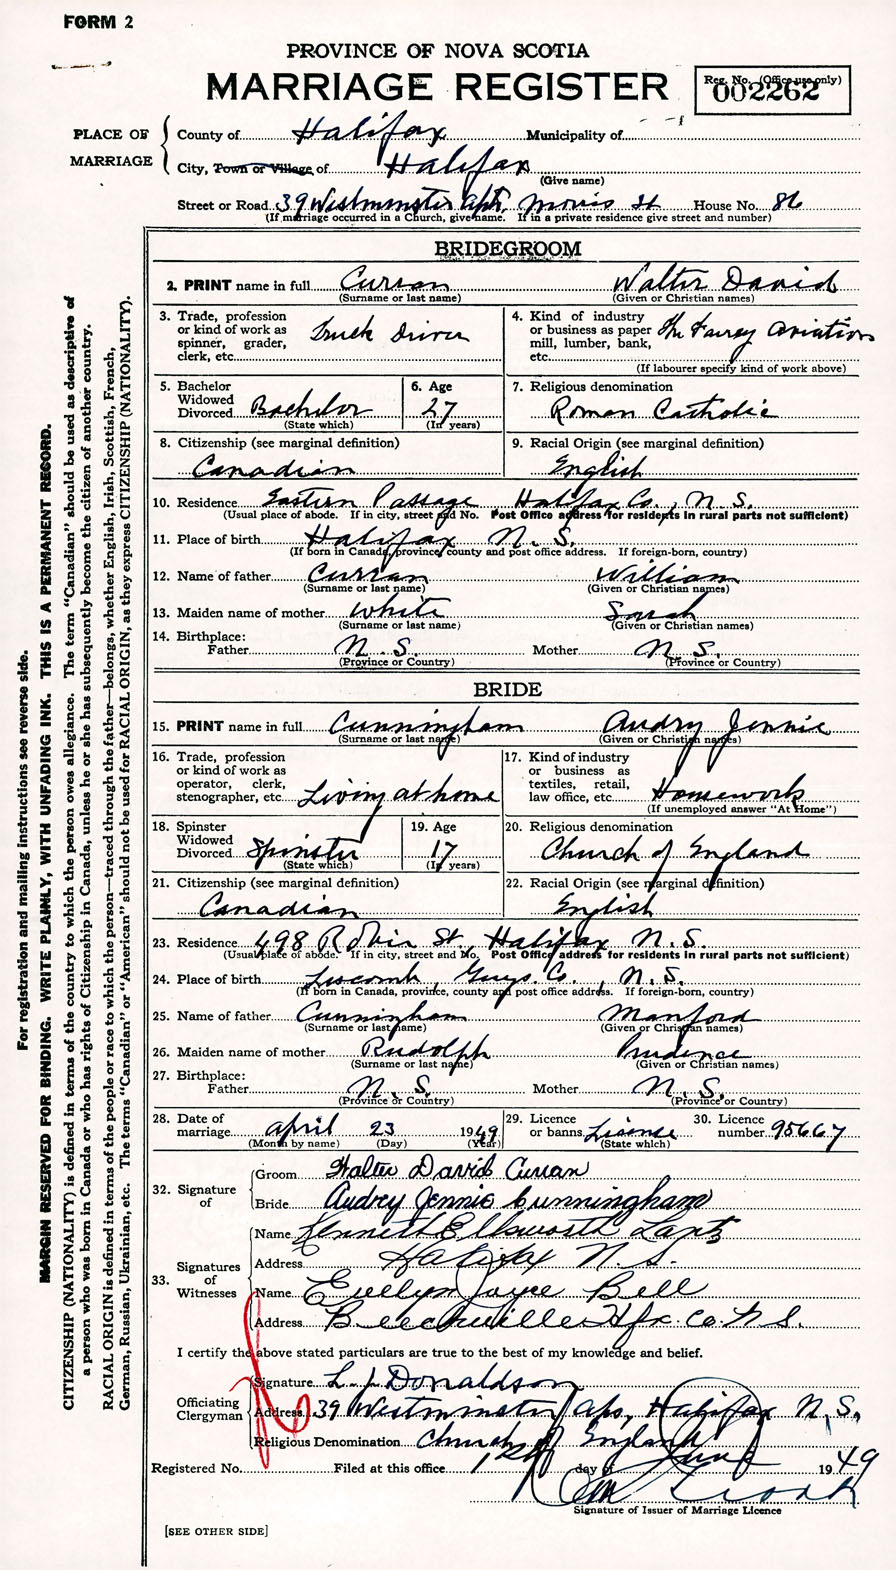 FORM 2
PROVINCE OF NOVA SCOTIA
MARRIAGE REGISTER
Reg. No. (Office use only)
002262
PLACE OF MARRIAGE
County of Halifax Municipality of
City, Town or Village of Halifax
(Give name)
Street or Road 39 Westminster Apt. Morris St House No. 86
(If marriage occurred in a Church, give name. If in a private residence give street and number)
BRIDEGROOM
2. PRINT name in full Curran Walter David
(Surname or last name) (Given or Christian names)
3. Trade, profession or kind of work as spinner, grader, clerk, etc. Truck Driver
4. Kind of industry or business as paper mill, lumber, bank, etc. The Fairey Aviation
(If labourer specify kind of work above)
5. Bachelor Widowed Divorced Bachelor
(State which)
6. Age 27
(In years)
7. Religious denomination
Roman Catholic
8. Citizenship (see marginal definition)
Canadian
9. Racial Origin (see marginal definition)
English
10. Residence Eastern Passage Halifax Co., N.S.
(Usual place of abode. If in city, street and No. Post Office address for residents in rural parts not sufficient)
11. Place of birth Halifax N.S.
(If born in Canada, province, county and post office address. If foreign-born, country)
12. Name of father Curran William
(Surname or last name) (Given or Christian names)
13. Maiden name of mother White Sarah
(Surname or last name) (Given or Christian names)
14. Birthplace:
Father N.S. Mother N.S.
(Province or Country) (Province or Country)
BRIDE
15. PRINT name in full Cunningham Audry Jennie
(Surname or last name) (Given or Christian names)
16. Trade, profession or kind of work as operator, clerk, stenographer, etc. Living at home
17. Kind of industry or business as textiles, retail, law office, etc. Homework
(If unemployed answer "At Home")
18. Spinster Widowed Divorced Spinster
(State which)
19. Age 17
(In years)
20. Religious denomination
Church of England
21. Citizenship (see marginal definition)
Canadian
22. Racial Origin (see marginal definition)
English
23. Residence 498 Robie St., Halifax N.S.
(Usual place of abode. If in city, street and No. Post Office address for residents in rural parts not sufficient)
24. Place of birth Liscomb Guys. Co., N.S.
(If born in Canada, province, county and post office address. If foreign-born, country)
25. Name of father Cunningham Manford
(Surname or last name) (Given or Christian names)
26. Maiden name of mother Rudolph Prudence
(Surname or last name) (Given or Christian names)
27. Birthplace:
Father N.S. Mother N.S.
(Province or Country) (Province or Country)
28. Date of marriage April 23 1949
(Month by name) (Day) (Year)
29. Licence or banns License
(State which)
30. Licence number 95667
32. Signature of
Groom Walter David Curran
Bride Audrey Jennie Cunningham
33. Signatures of Witnesses
Name Kenneth Ellsworth Lantz
Address Halifax N.S.
Name Evelyn Joyce Bell
Address Beechville Hfx. Co. N.S.
I certify the above stated particulars are true to the best of my knowledge and belief.
Officiating Clergyman
Signature L. J. Donaldson
Address 39 Westminster Aps, Halifax N.S.
Religious Denomination Church of England
Registered No. Filed at this office 1st day of June 1949
Signature of Issuer of Marriage Licence
[SEE OTHER SIDE]
For registration and mailing instructions see reverse side.
MARGIN RESERVED FOR BINDING. WRITE PLAINLY, WITH UNFADING INK. THIS IS A PERMANENT RECORD.
CITIZENSHIP (NATIONALITY) is defined in terms of the country to which the person owes allegiance. The term "Canadian" should be used as descriptive of
a person who was born in Canada or who has rights of Citizenship in Canada, unless he or she has subsequently become the citizen of another country.
RACIAL ORIGIN is defined in terms of the people or race to which the person—traced through the father—belongs, whether English, Irish, Scottish, French,
German, Russian, Ukrainian, etc. The terms "Canadian" or "American" should not be used for RACIAL ORIGIN, as they express CITIZENSHIP (NATIONALITY).